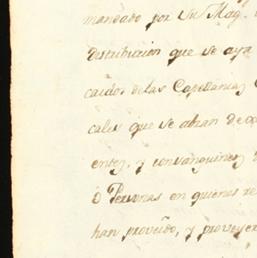 mandado por Su Mag.
distribucion que se aya
caidos de las Capellanias
cales que se abran de
entes, y consanguineos
ó Personas en quienes re
han proveido, y proveyer